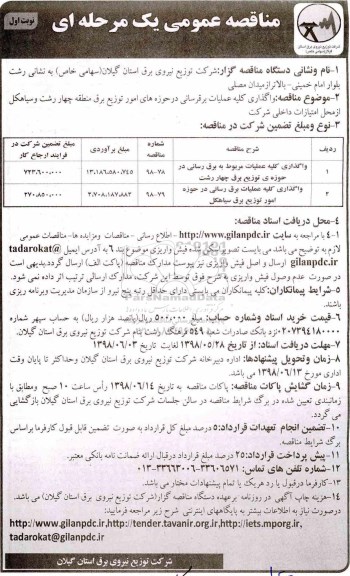 نوبت اول
مناقصه عمومی یک مرحله ای
شرکت توزیع نیروی برق استان گیلان
۱-نام ونشانی دستگاه مناقصه گزار:شرکت توزیع نیروی برق استان گیلان(سهامی خاص) به نشانی رشت
بلوار امام خمینی-بالاتر ازمیدان مصلی
۲-موضوع مناقصه:واگذاری کلیه عملیات برقرسانی درحوزه های امور توزیع برق منطقه چهار رشت وسیاهکل
ازمحل امتیازات داخلی شرکت
۳-نوع ومبلغ تضمین شرکت در مناقصه:
ردیف شرح مناقصه شماره مناقصه مبلغ برآوردی مبلغ تضمین شرکت در فرایند ارجاع کار
۱ واگذاری کلیه عملیات مربوط به برق رسانی در حوزه ی توزیع برق چهار رشت ۹۸-۷۸ ۱۳،۱۸۶،۵۸۰،۷۴۵ ۷۲۳۶۰۰،۰۰۰
۲ واگذاری کلیه عملیات برق رسانی در حوزه امور توزیع برق سیاهکل ۹۸-۷۹ ۲،۷۰۸،۱۸۷،۸۸۲ ۲۷۰،۸۵۰،۰۰۰
۴-محل دریافت اسناد مناقصه:
۴-۱ با مراجعه به سایت http://www.gilanpdc.ir - اطلاع رسانی - مناقصات ومزایده ها-مناقصات عمومی
لازم به توضیح می باشد می بایست تصویر فیش واریزی موضوع بند ۶ به آدرس ایمیل tadarokat@
gilanpdc.ir ارسال و اصل فیش واریزی نیز پیوست مدارک مناقصه (پاکت الف) ارسال گردد.بدیهی است
در صورت عدم وصول فیش واریزی به شرح فوق توسط این شرکت، مدارک ارسالی ترتیب اثر داده نمی شود.
۵-شرایط پیمانکاران:کلیه پیمانکاران می بایستی دارای حداقل رتبه پنج نیرو از سازمان مدیریت وبرنامه ریزی
باشند.
۶-قیمت خرید اسناد وشماره حساب: مبلغ ۵۰۰،۰۰۰ ریال(پانصد هزار ریال) به حساب سپهر شماره
۰۲۰۷۳۹۴۱۸۰۰۰ نزد بانک صادرات شعبه ۵۴۹ فرهنگ رشت بنام شرکت توزیع نیروی برق استان گیلان.
۷-مهلت دریافت اسناد: از تاریخ ۱۳۹۸/۰۵/۲۸ لغایت تاریخ ۱۳۹۸/۰۶/۰۳
۸-زمان وتحویل پیشنهادها: اداره دبیرخانه شرکت توزیع نیروی برق استان گیلان وحداکثر تا پایان وقت
اداری مورخ ۱۳۹۸/۰۶/۱۳ می باشد.
۹-زمان گشایش پاکات مناقصه: پاکات مناقصه به تاریخ ۱۳۹۸/۰۶/۱۴ رأس ساعت ۱۰ صبح ومطابق با
زمانبندی تعیین شده در برگ شرایط مناقصه در سالن جلسات شرکت توزیع نیروی برق استان گیلان بازگشایی
می گردد.
۱۰-تضمین انجام تعهدات قرارداد:۵ درصد مبلغ کل قرارداد به صورت تضمین قابل قبول کارفرما براساس
برگ شرایط مناقصه.
۱۱-پیش پرداخت قرارداد:۲۵ درصد مبلغ قرارداد درقبال ارائه ضمانت نامه بانکی معتبر.
۱۲-شماره تلفن های تماس: ۳۳۶۰۶۵۷۱-۳۳۶۶۳۰۰۶-۰۱۳
۱۳-کارفرما درقبول یا رد هریک یا تمام پیشنهادات مختار می باشد.
۱۴-هزینه چاپ آگهی در روزنامه برعهده دستگاه مناقصه گزار(شرکت توزیع نیروی برق استان گیلان) می باشد.
درصورت نیاز به اطلاعات بیشتر به پایگاههای اینترنتی شرح زیر مراجعه فرمایید:
http://www.gilanpdc.ir,http://tender.tavanir.org.ir,http://iets.mporg.ir,
tadarokat@gilanpdc.ir
شرکت توزیع نیروی برق استان گیلان